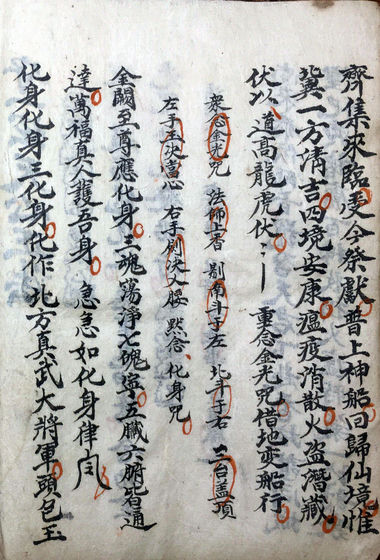 齊集來臨受今祭獻普上神船回歸仙境惟
冀一方清吉四境安康瘟疫消散火盗潛藏
伏以道高龍虎伏〻 重念金光咒借地变船行
衆念金光咒 法師上香 剔南斗于左 北斗于右 三台盖頂
左手玉決當心 右手剑決叉腰 默念化身咒
金闕至尊應化身三魂蕩淨七魄㝵五臟六腑皆通
達萬福真人護吾身 急急如化身律令
化身化身三化身化作北方真武大將軍頭包玉